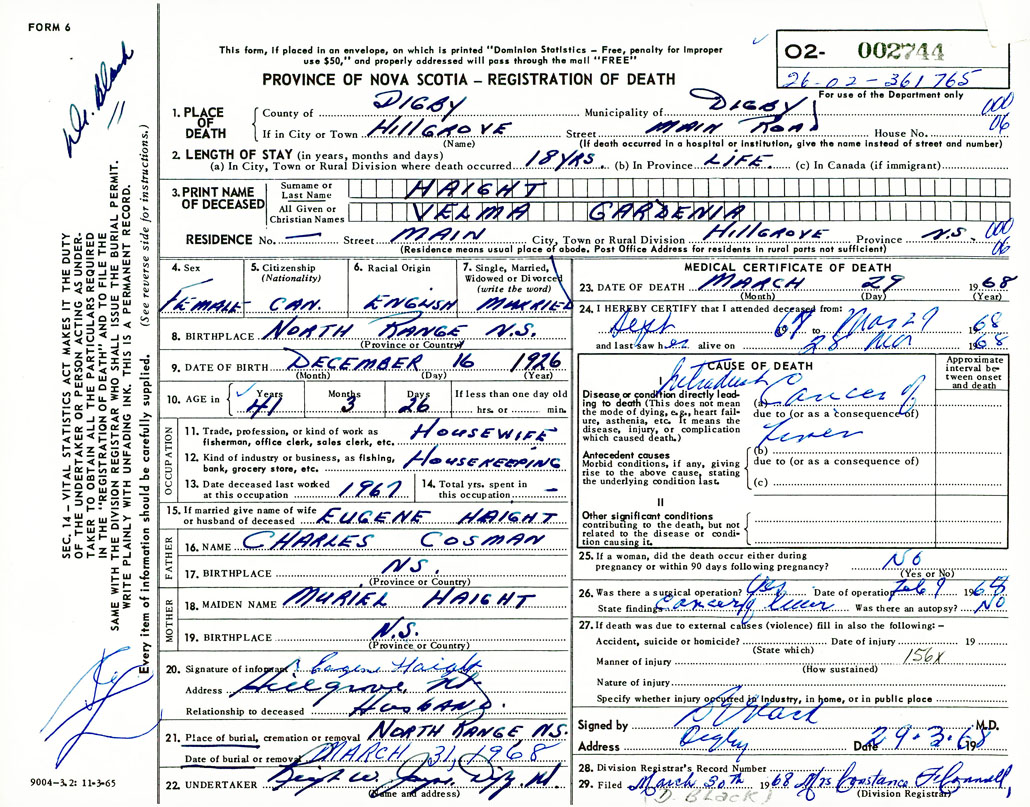 FORM 6
This form, if placed in an envelope, on which is printed "Dominion Statistics – Free, penalty for improper
use $50," and properly addressed will pass through the mail "FREE"
PROVINCE OF NOVA SCOTIA – REGISTRATION OF DEATH
02- 002744
26-02-361765
For use of the Department only
Dr. Black
SEC. 14 – VITAL STATISTICS ACT MAKES IT THE DUTY
OF THE UNDERTAKER OR PERSON ACTING AS UNDER-
TAKER TO OBTAIN ALL THE PARTICULARS REQUIRED
IN THE "REGISTRATION OF DEATH" AND TO FILE THE
SAME WITH THE DIVISION REGISTRAR WHO SHALL ISSUE THE BURIAL PERMIT.
WRITE PLAINLY WITH UNFADING INK. THIS IS A PERMANENT RECORD.
Every item of information should be carefully supplied. (See reverse side for instructions.)
1. PLACE OF DEATH
County of DIGBY Municipality of DIGBY 000
If in City or Town HILLGROVE Street MAIN ROAD House No. 06
(Name) (If death occurred in a hospital or institution, give the name instead of street and number)
2. LENGTH OF STAY (in years, months and days)
(a) In City, Town or Rural Division where death occurred 18 YRS. (b) In Province LIFE (c) In Canada (if immigrant)
3. PRINT NAME OF DECEASED
Surname or Last Name HAIGHT
All Given or Christian Names VELMA GARDENIA
RESIDENCE No. — Street MAIN City, Town or Rural Division HILLGROVE Province N.S. 000
(Residence means usual place of abode. Post Office Address for residents in rural parts not sufficient) 06
4. Sex FEMALE
5. Citizenship (Nationality) CAN.
6. Racial Origin ENGLISH
7. Single, Married, Widowed or Divorced (write the word) MARRIED
8. BIRTHPLACE NORTH RANGE N.S.
(Province or Country)
9. DATE OF BIRTH DECEMBER 16 1926
(Month) (Day) (Year)
10. AGE in Years 41 Months 3 Days 26 If less than one day old
hrs. or min.
OCCUPATION
11. Trade, profession, or kind of work as
fisherman, office clerk, sales clerk, etc. HOUSEWIFE
12. Kind of industry or business, as fishing,
bank, grocery store, etc. HOUSEKEEPING
13. Date deceased last worked
at this occupation 1967
14. Total yrs. spent in
this occupation –
15. If married give name of wife
or husband of deceased EUGENE HAIGHT
FATHER
16. NAME CHARLES COSMAN
17. BIRTHPLACE N.S.
(Province or Country)
MOTHER
18. MAIDEN NAME MURIEL HAIGHT
19. BIRTHPLACE N.S.
(Province or Country)
20. Signature of informant Eugene Haight
Address Hillgrove, NS
Relationship to deceased HUSBAND.
21. Place of burial, cremation or removal NORTH RANGE N.S.
Date of burial or removal MARCH 31, 1968
22. UNDERTAKER
(Name and address)
9004-3.2: 11-3-65
MEDICAL CERTIFICATE OF DEATH
23. DATE OF DEATH MARCH 29 1968
(Month) (Day) (Year)
24. I HEREBY CERTIFY that I attended deceased from:
Sept 67 to Mar 29 1968
and last saw her alive on 28 Mar 1968
CAUSE OF DEATH
Approximate interval between onset and death
Disease or condition directly lead-
ing to death (This does not mean
the mode of dying, e.g., heart fail-
ure, asthenia, etc. It means the
disease, injury, or complication
which caused death.)
Cancer of
due to (or as a consequence of)
Liver
Antecedent causes
Morbid conditions, if any, giving
rise to the above cause, stating
the underlying condition last.
(b)
due to (or as a consequence of)
(c)
II
Other significant conditions
contributing to the death, but not
related to the disease or condi-
tion causing it.
25. If a woman, did the death occur either during
pregnancy or within 90 days following pregnancy? No
(Yes or No)
26. Was there a surgical operation? Yes Date of operation Feb 9 1968
State findings Cancer of liver Was there an autopsy? No
27. If death was due to external causes (violence) fill in also the following: –
Accident, suicide or homicide? Date of injury 19
(State which)
Manner of injury 156X
(How sustained)
Nature of injury
Specify whether injury occurred in industry, in home, or in public place
Signed by Black M.D.
Address Digby Date 29.3.1968
28. Division Registrar's Record Number
29. Filed March 30th 1968 Mrs Constance O'Connell
(D. BLACK) (Division Registrar)